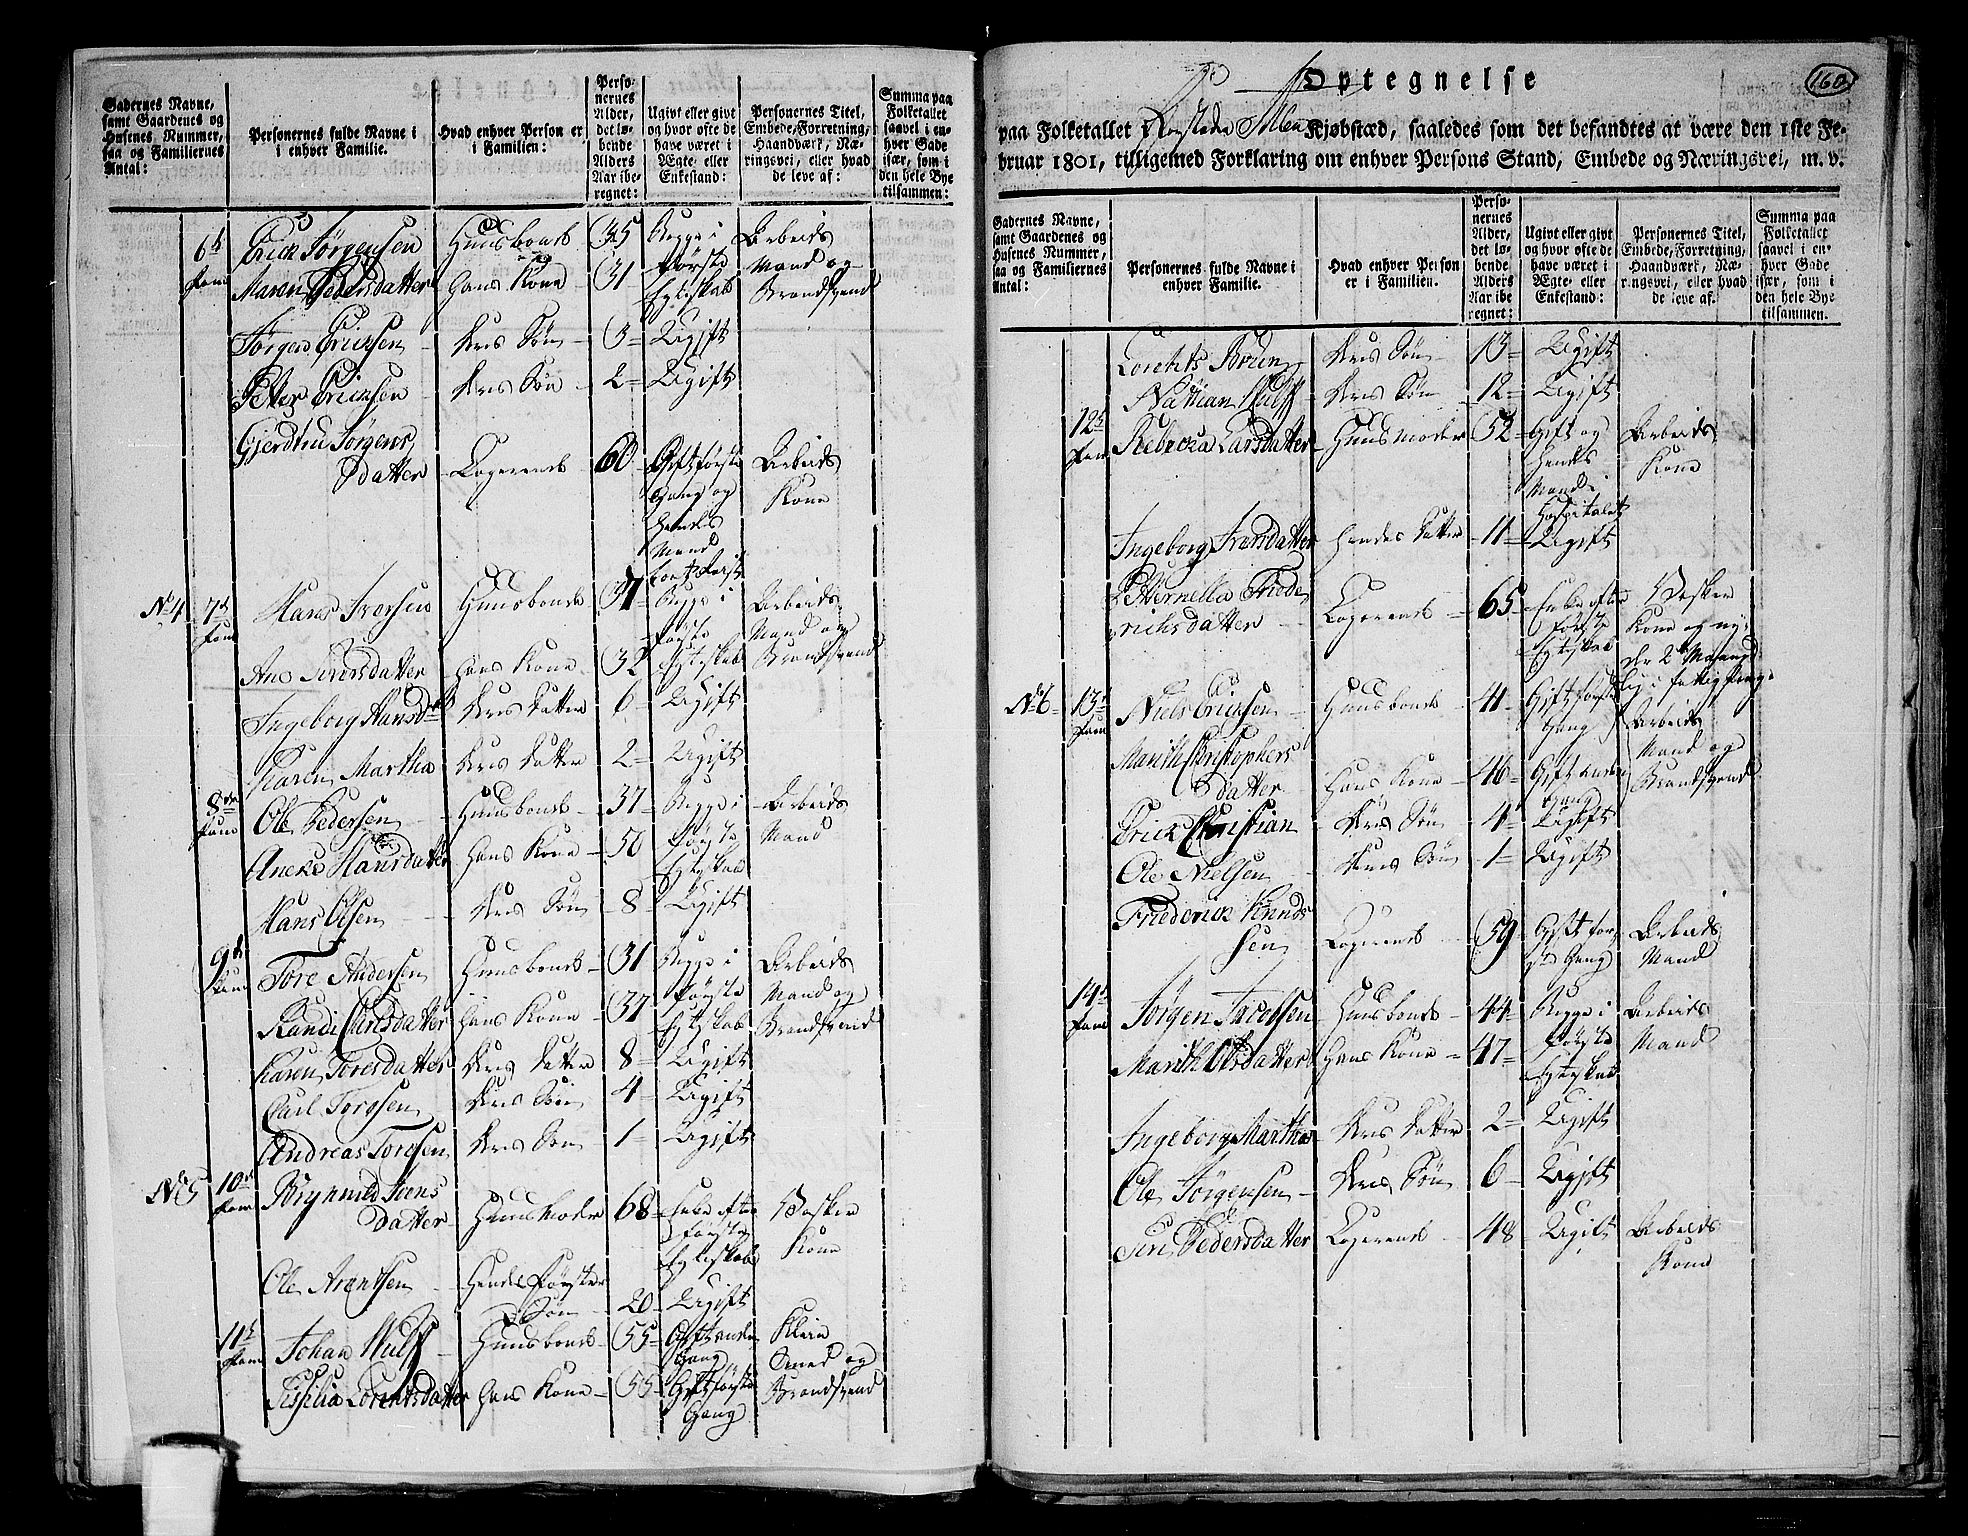 Gadernes Navne, samt Gaardenes og Husenes Nummer, saa og Familiernes Antal:
Personernes fulde Navne i i enhver Familie.
Hvad enhver Person er i Familien:
Personernes Alder, det løbende Alders Aar iberegnet:
Ugivt eller givt og hvor ofte de have været i Ægte- eller Enkestand:
Personernes Titel, Embede, Forretning, Haandværk, Næringsvei, eller hvad de leve af:
Summa paa Folketallet saavel i enhver Gade især, som i den hele Bye tilsammen:
6te Fam Erick Jørgensen Huusbonde 35 Begge i Arbeids
Maren Pedersdatter hans Kone 31 første Mand og
Egteskab Brandsvend
Jørgen Ericksen Deres Søn 3 Ugift
Peter Ericksen Deres Søn 2 Ugift
Gjerdtru Jørgens
datter Logerende 60 Gift første Arbeids
Gang og Kone
hendes
Mand
No 4 7de Fam Hans Iversen Huusbonde 37 Begge i Arbeids
første Mand og
Ane Siversdatter hans Kone 32 Egteskab Brandsvend
Ingeborg Hansdtr Deres Datter 6 Ugift
Karen Martha Deres Datter 2 Ugift
8de Fam Ole Pedersen Huusbonde 37 Begge i Arbeids
første Mand
Aneke Hansdatter hans Kone 50 Egteskab
Hans Olsen Deres Søn 8 Ugift
9de Fam Tore Andersen Huusbonde 31 Begge i Arbeids
første Mand og
Randi Carlsdatter hans Kone 37 Egteskab Brandsvend
Karen Toresdatter Deres Datter 8 Ugift
Carl Toresen Deres Søn 4 Ugift
Andreas Toresen Deres Søn 1 Ugift
No 5 10de Fam Brynnild Jens
datter Huus Moder 68 Enke efter Vasker
første Kone
Egteskab
Ole Arentsen Hendes
Søn 20 Ugift
11te Fam Johan Wulf Huusbonde 55 Gift anden Klein
Gang Smed og
Sissilia Lorentsdatter hans Kone 55 Gift første Brandsvend
Gang
160
Optegnelse
paa Folketallet i Kjøbstæd, saaledes som det befandtes at være den 1ste Fe-
bruar 1801, tilligemed Forklaring om enhver Persons Stand, Embede og Næringsvei, m. v.
Gadernes Navne, samt Gaardenes og Husenes Nummer, saa og Familiernes Antal:
Personernes fulde Navne i enhver Familie.
Hvad enhver Person er i Familien.
Personernes Alder, det løbende Alders Aar iberegnet:
Ugivt eller givt og hvor ofte de have været i Ægte- eller Enkestand:
Personernes Titel, Embede, Forretning, Haandværk, Næringsvei, eller hvad de leve af.
Summa paa Folketallet saavel i enhver Gade især, som i den hele Bye tilsammen.
Lorents Bruun Deres Søn 13 Ugift
Nathan Wulf Deres Søn 12 Ugift
12te Fam Rebecka Larsdatter Huus moder 52 Gift og Arbeids
hendes Kone
Mand i
Hospitalet
Ingeborg Iversdatter hendes Datter 11 Ugift
Petternella Friede
richsdatter Logerende 65 Enke efter Vasker
første Kone og ny
Egteskab
No 6 13de Fam Niels Ericksen Huusbonde 41 Gift første
Gang Arbeids
Marith Christophers Mand og
datter hans Kone 46 Gift anden Brandsvend
Gang
Erick Christian Deres Søn 4 Ugift
Ole Nielsen Deres Søn 1 Ugift
Friederick Knud
sen Logerende 59 Gift før Arbeids
ste Gang Mand
14de Fam Jørgen Jacobsen Huusbonde 44 Begge i Arbeids
første Mand
Marith Olsdatter hans Kone 47 Egteskab
Ingeborg Marthea Deres Datter 2 Ugift
Ole Jørgensen Deres Søn 6 Ugift
Siri Pedersdatter Logerende 48 Ugift Arbeids
Kone